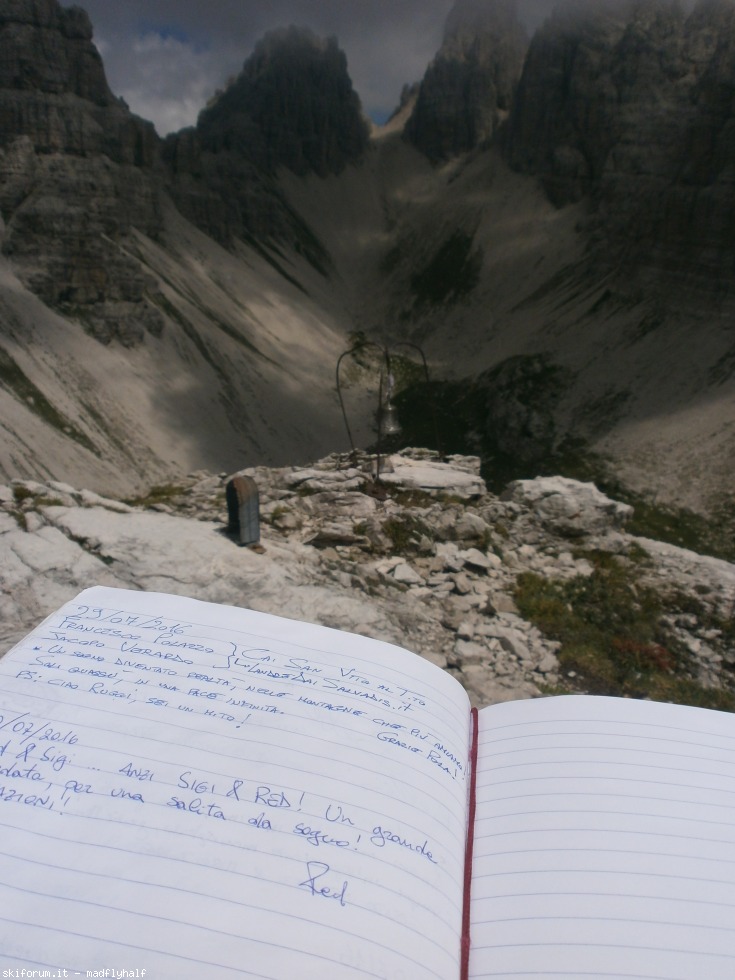 29/07/2016
FRANCESCO POLAZZO } CAI SAN VITO AL T.TO
JACOPO VERARDO } LALANDEDAISALVADIS.it
* UN SOGNO DIVENTATO REALTÀ, NELLE MONTAGNE CHE PIÙ AMIAMO!
SOLI QUASSÙ, IN UNA PACE INFINITA.
GRAZIE
PS: CIAO RUGGI, SEI UN MITO!
/07/2016
& Sigi ... ANZI SIGI & RED! Un grande
per una salita da sogno!
AZIONI!
Red
skiforum.it - madflyhalf